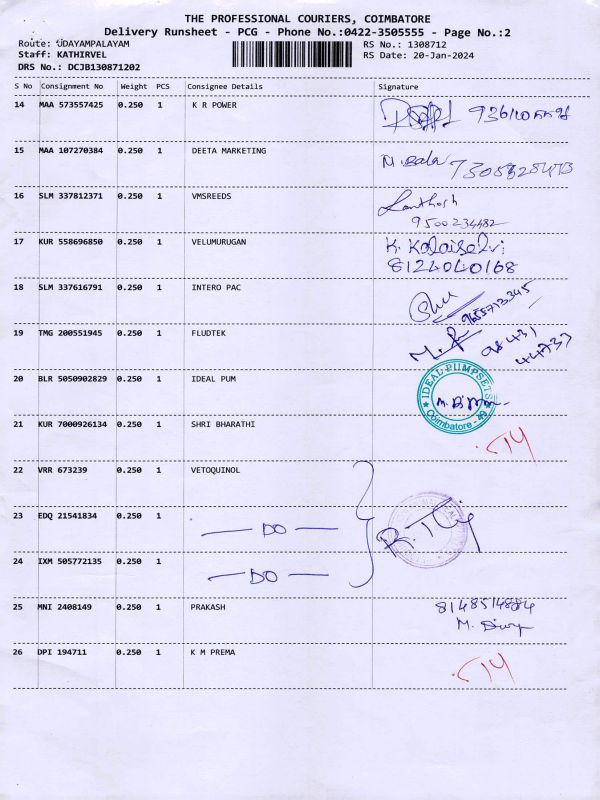 THE PROFESSIONAL COURIERS, COIMBATORE
Delivery Runsheet - PCG - Phone No.:0422-3505555 - Page No.:2
Route: UDAYAMPALAYAM RS No.: 1308712
Staff: KATHIRVEL RS Date: 20-Jan-2024
DRS No.: DCJB130871202
S No Consignment No Weight PCS Consignee Details Signature
14 MAA 573557425 0.250 1 K R POWER
15 MAA 107270384 0.250 1 DEETA MARKETING M. Bala
16 SLM 337812371 0.250 1 VMSREEDS Santhosh
9500234482
17 KUR 558696850 0.250 1 VELUMURUGAN K. Kalaiselvi
8124040168
18 SLM 337616791 0.250 1 INTERO PAC 9655713345
19 TMG 200551945 0.250 1 FLUDTEK 98431
44737
20 BLR 5050902829 0.250 1 IDEAL PUM IDEAL PUMPSETS
Coimbatore - 49
21 KUR 7000926134 0.250 1 SHRI BHARATHI
22 VRR 673239 0.250 1 VETOQUINOL
23 EDQ 21541834 0.250 1 — DO —
24 IXM 505772135 0.250 1 — DO —
25 MNI 2408149 0.250 1 PRAKASH 8148514884
26 DPI 194711 0.250 1 K M PREMA